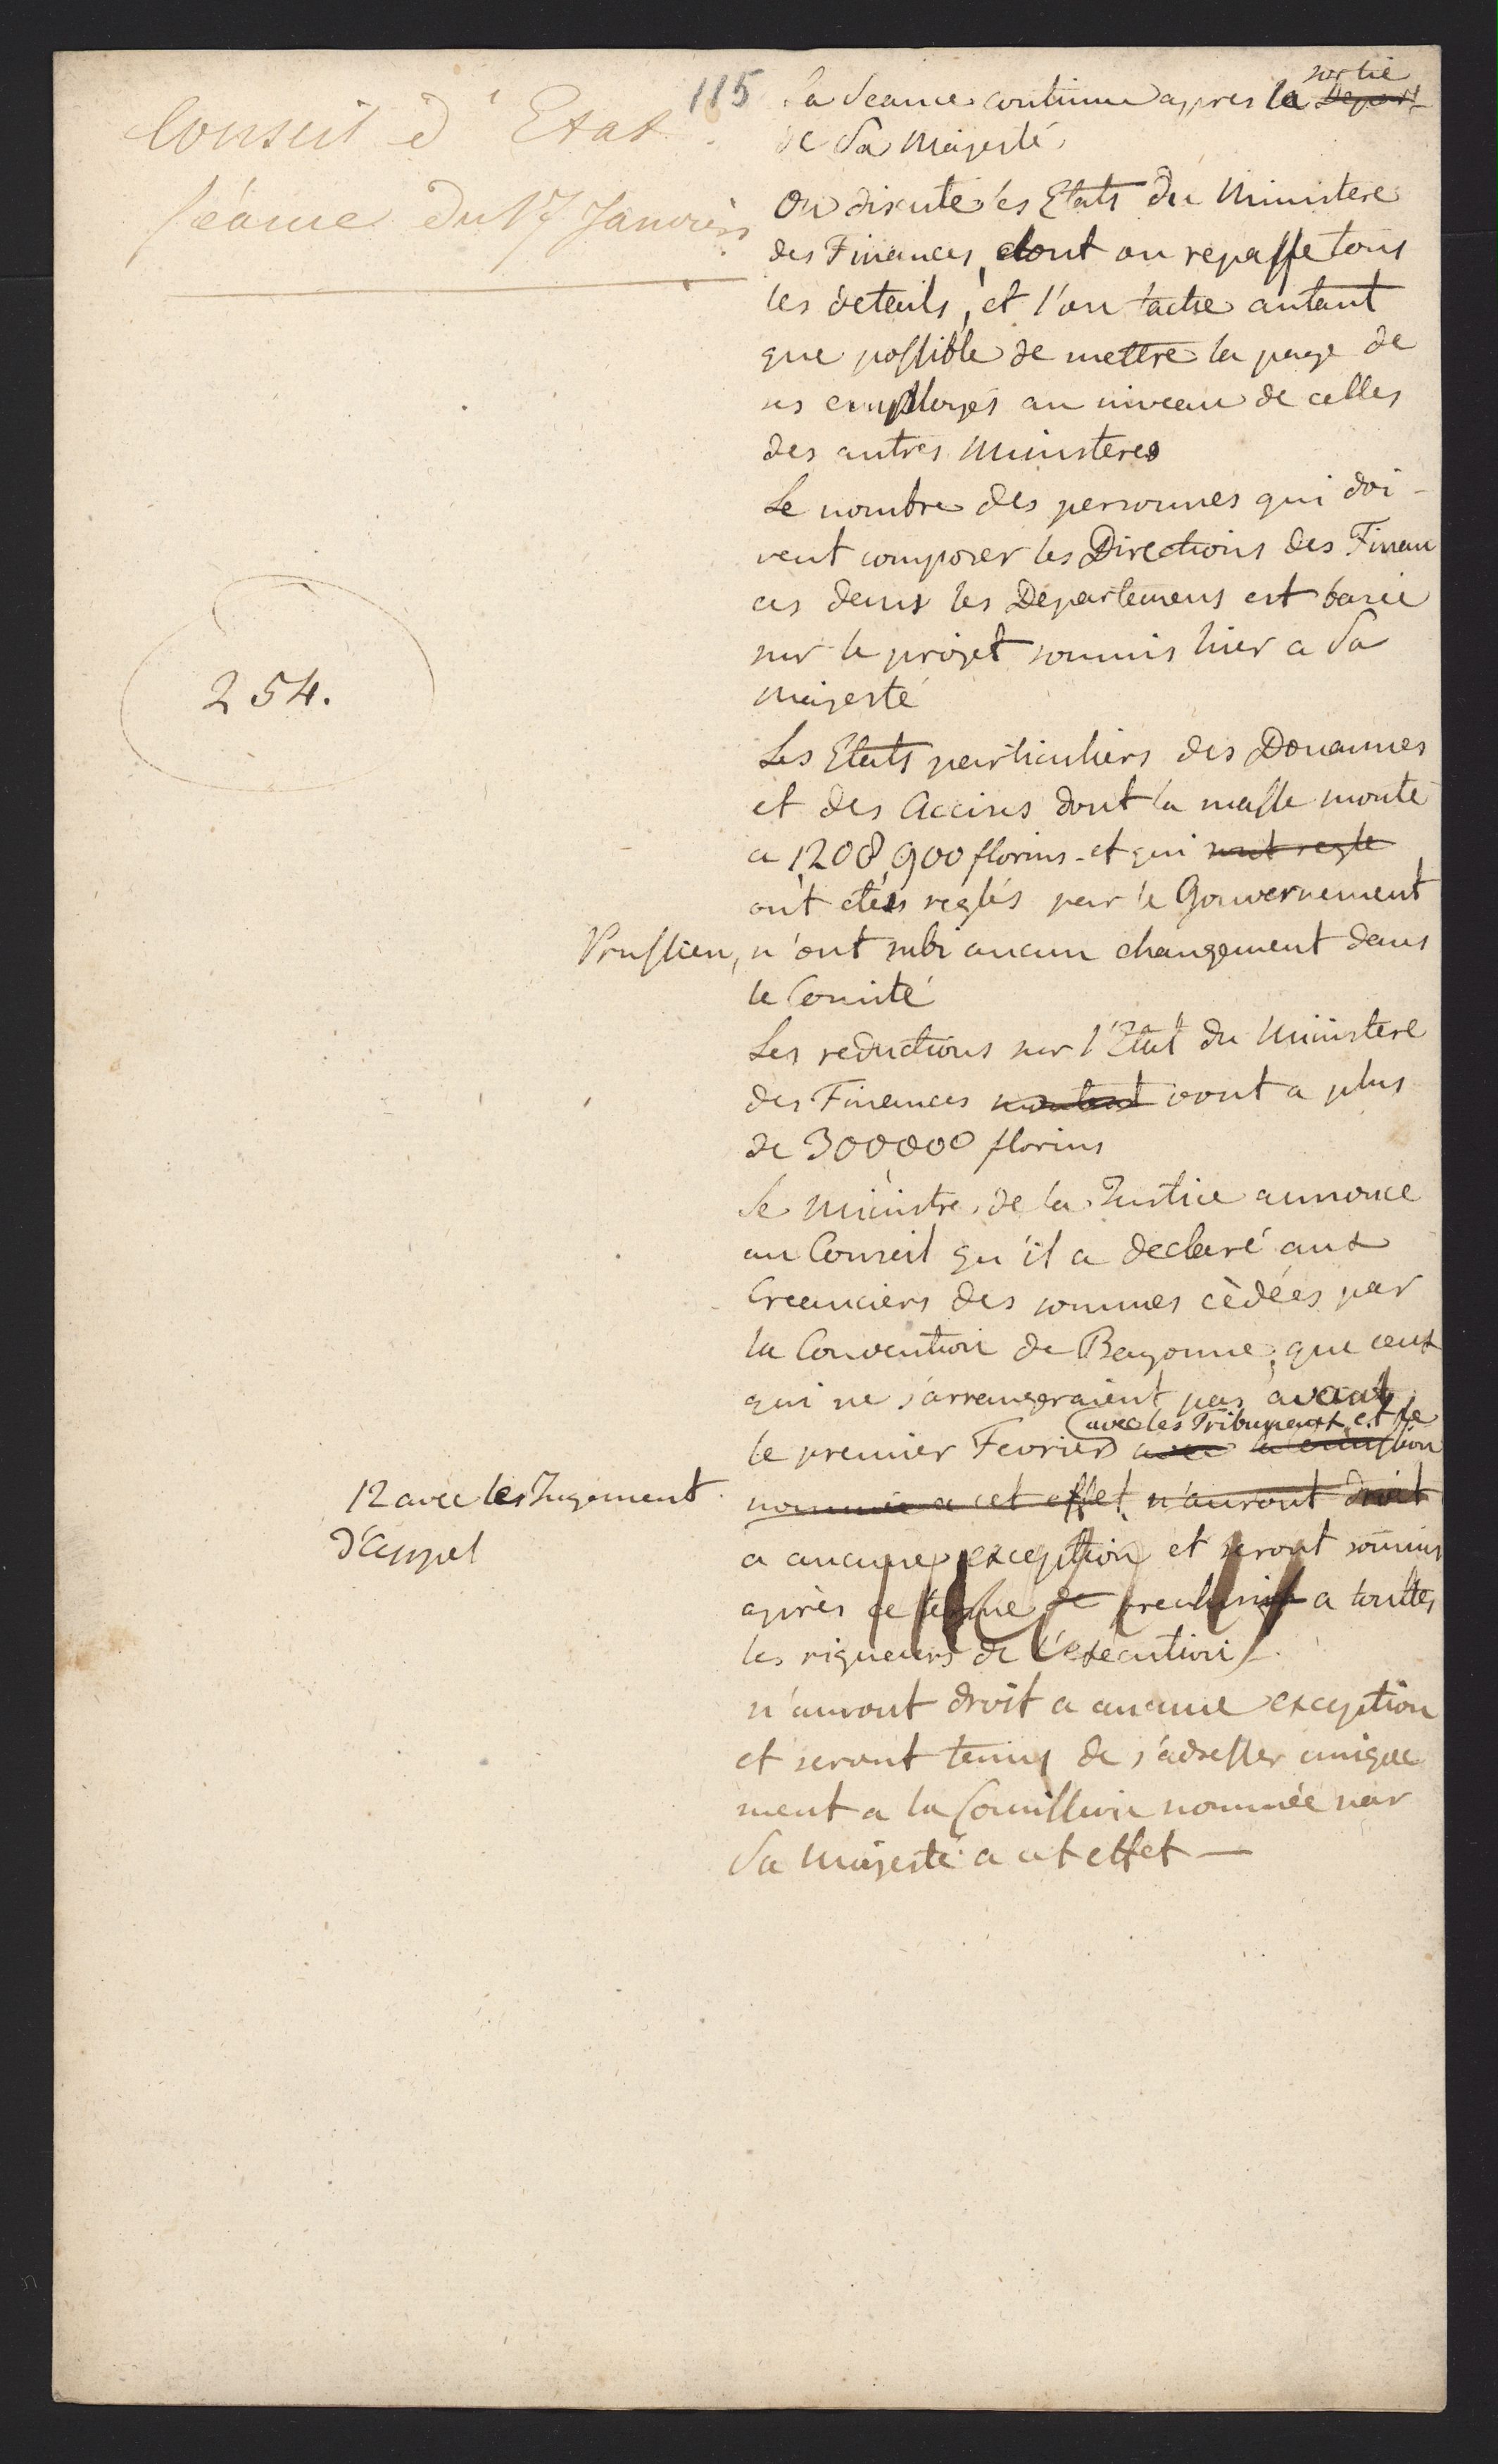 Conseil d'Etat
Séance du 17 Janvier
115
254.
sortie
La Seance continue apres la Depart
de Sa Majesté
On discute les Etats du Ministere
des Finances, dont on repasse tous
les details, et l'on tache autant
que possible de mettre la paye de
ses employés au niveau de celles
des autres Ministeres
Le nombre des personnes qui doi-
vent composer les Directions des Finan
ces dans les Departemens est basé
sur le projet soumis hier a Sa
Majesté
Les Etats particuliers des Douannes
et des Accises dont la masse monte
a 1,208,900 florins et qui sont reglé
ont étés reglés par le Gouvernement
Prussien, n'ont subi aucun changement dans
le Comité
Les reductions sur l'Etat du Ministere
des Finances montent vont a plus
de 300000 florins
Le Ministre de la Justice annonce
au Conseil qu'il a declaré aux
Creanciers des sommes cèdées par
la Convention de Bayonne, que ceux
qui ne s'arrangeraient pas avant
avec les Tribunaux et le
le premier Fevrier avec la
12 avec les Jugement
d'Appel
nommée a cet effet n'auront droit
a aucune exception et seront soumis
après ce terme de a toutes
les rigueurs de l'exécution.
n'auront droit a aucune exception
et seront tenus de s'adresser unique
ment a la Comission nommée par
Sa Majesté a cet effet —